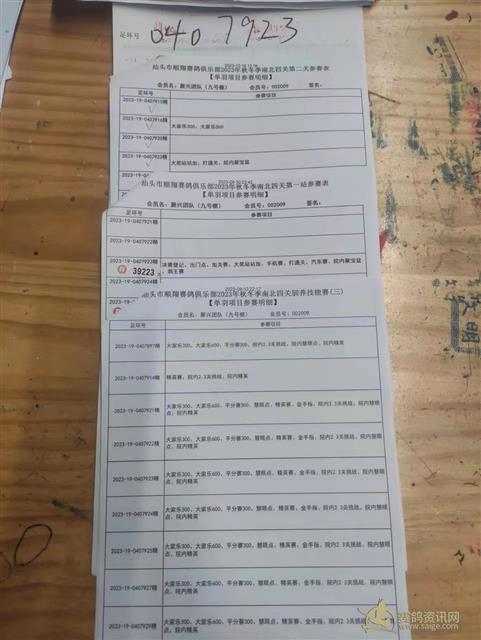 足环号
0407923
汕头市顺翔赛鸽俱乐部2023年秋冬季南北四关第二关参赛表
【单羽项目参赛明细】
会员名: 聚兴团队（九号棚） 会员号: 002009 签名:
足环号 参赛项目
2023-19-0407915
2023-19-0407916 大家乐300, 大家乐600
2023-19-0407920
2023-19-0407923 大奖站站加, 打通关, 院内聚宝盆
汕头市顺翔赛鸽俱乐部2023年秋冬季南北四关第一站参赛表
【单羽项目参赛明细】
会员名: 聚兴团队（九号棚） 会员号: 002009 签名:
足环号 参赛项目
2023-19-0407921
2023-19-0407922
2023-19-0407923 决赛登记, 出门点, 加关赛, 大奖站站加, 手机赛, 打通关, 汽车赛, 院内聚宝盆, 鸽王赛
39223
2023-19-0407924
汕头市顺翔赛鸽俱乐部2023年秋冬季南北四关驯养技能赛(三)
【单羽项目参赛明细】
会员名: 聚兴团队（九号棚） 会员号: 002009
足环号 参赛项目
2023-19-0407897精 大家乐300, 大家乐600, 平分赛300, 院内2.3关挑战, 院内慧眼点, 院内精英
2023-19-0407914精 精英赛, 院内2.3关挑战, 院内精英
2023-19-0407921精 大家乐300, 大家乐600, 平分赛300, 慧眼点, 精英赛, 金手指, 院内2.3关挑战, 院内慧眼
点, 院内精英
2023-19-0407922精 大家乐300, 大家乐600, 平分赛300, 慧眼点, 精英赛, 金手指, 院内2.3关挑战, 院内慧眼
点, 院内精英
2023-19-0407923精 大家乐300, 大家乐600, 平分赛300, 慧眼点, 精英赛, 金手指, 院内2.3关挑战, 院内慧眼
点, 院内精英
2023-19-0407924精 大家乐300, 大家乐600, 平分赛300, 慧眼点, 精英赛, 金手指, 院内2.3关挑战, 院内慧眼
点, 院内精英
2023-19-0407925精 大家乐300, 大家乐600, 平分赛300, 慧眼点, 精英赛, 金手指, 院内2.3关挑战, 院内慧眼
点, 院内精英
2023-19-0407927精 大家乐300, 大家乐600, 平分赛300, 慧眼点, 精英赛, 金手指, 院内2.3关挑战, 院内慧眼
点, 院内精英
2023-19-0407929精 大家乐300, 大家乐600, 平分赛300, 慧眼点, 精英赛, 金手指, 院内2.3关挑战, 院内慧眼
点, 院内精英
赛鸽资讯网
www.saige.com